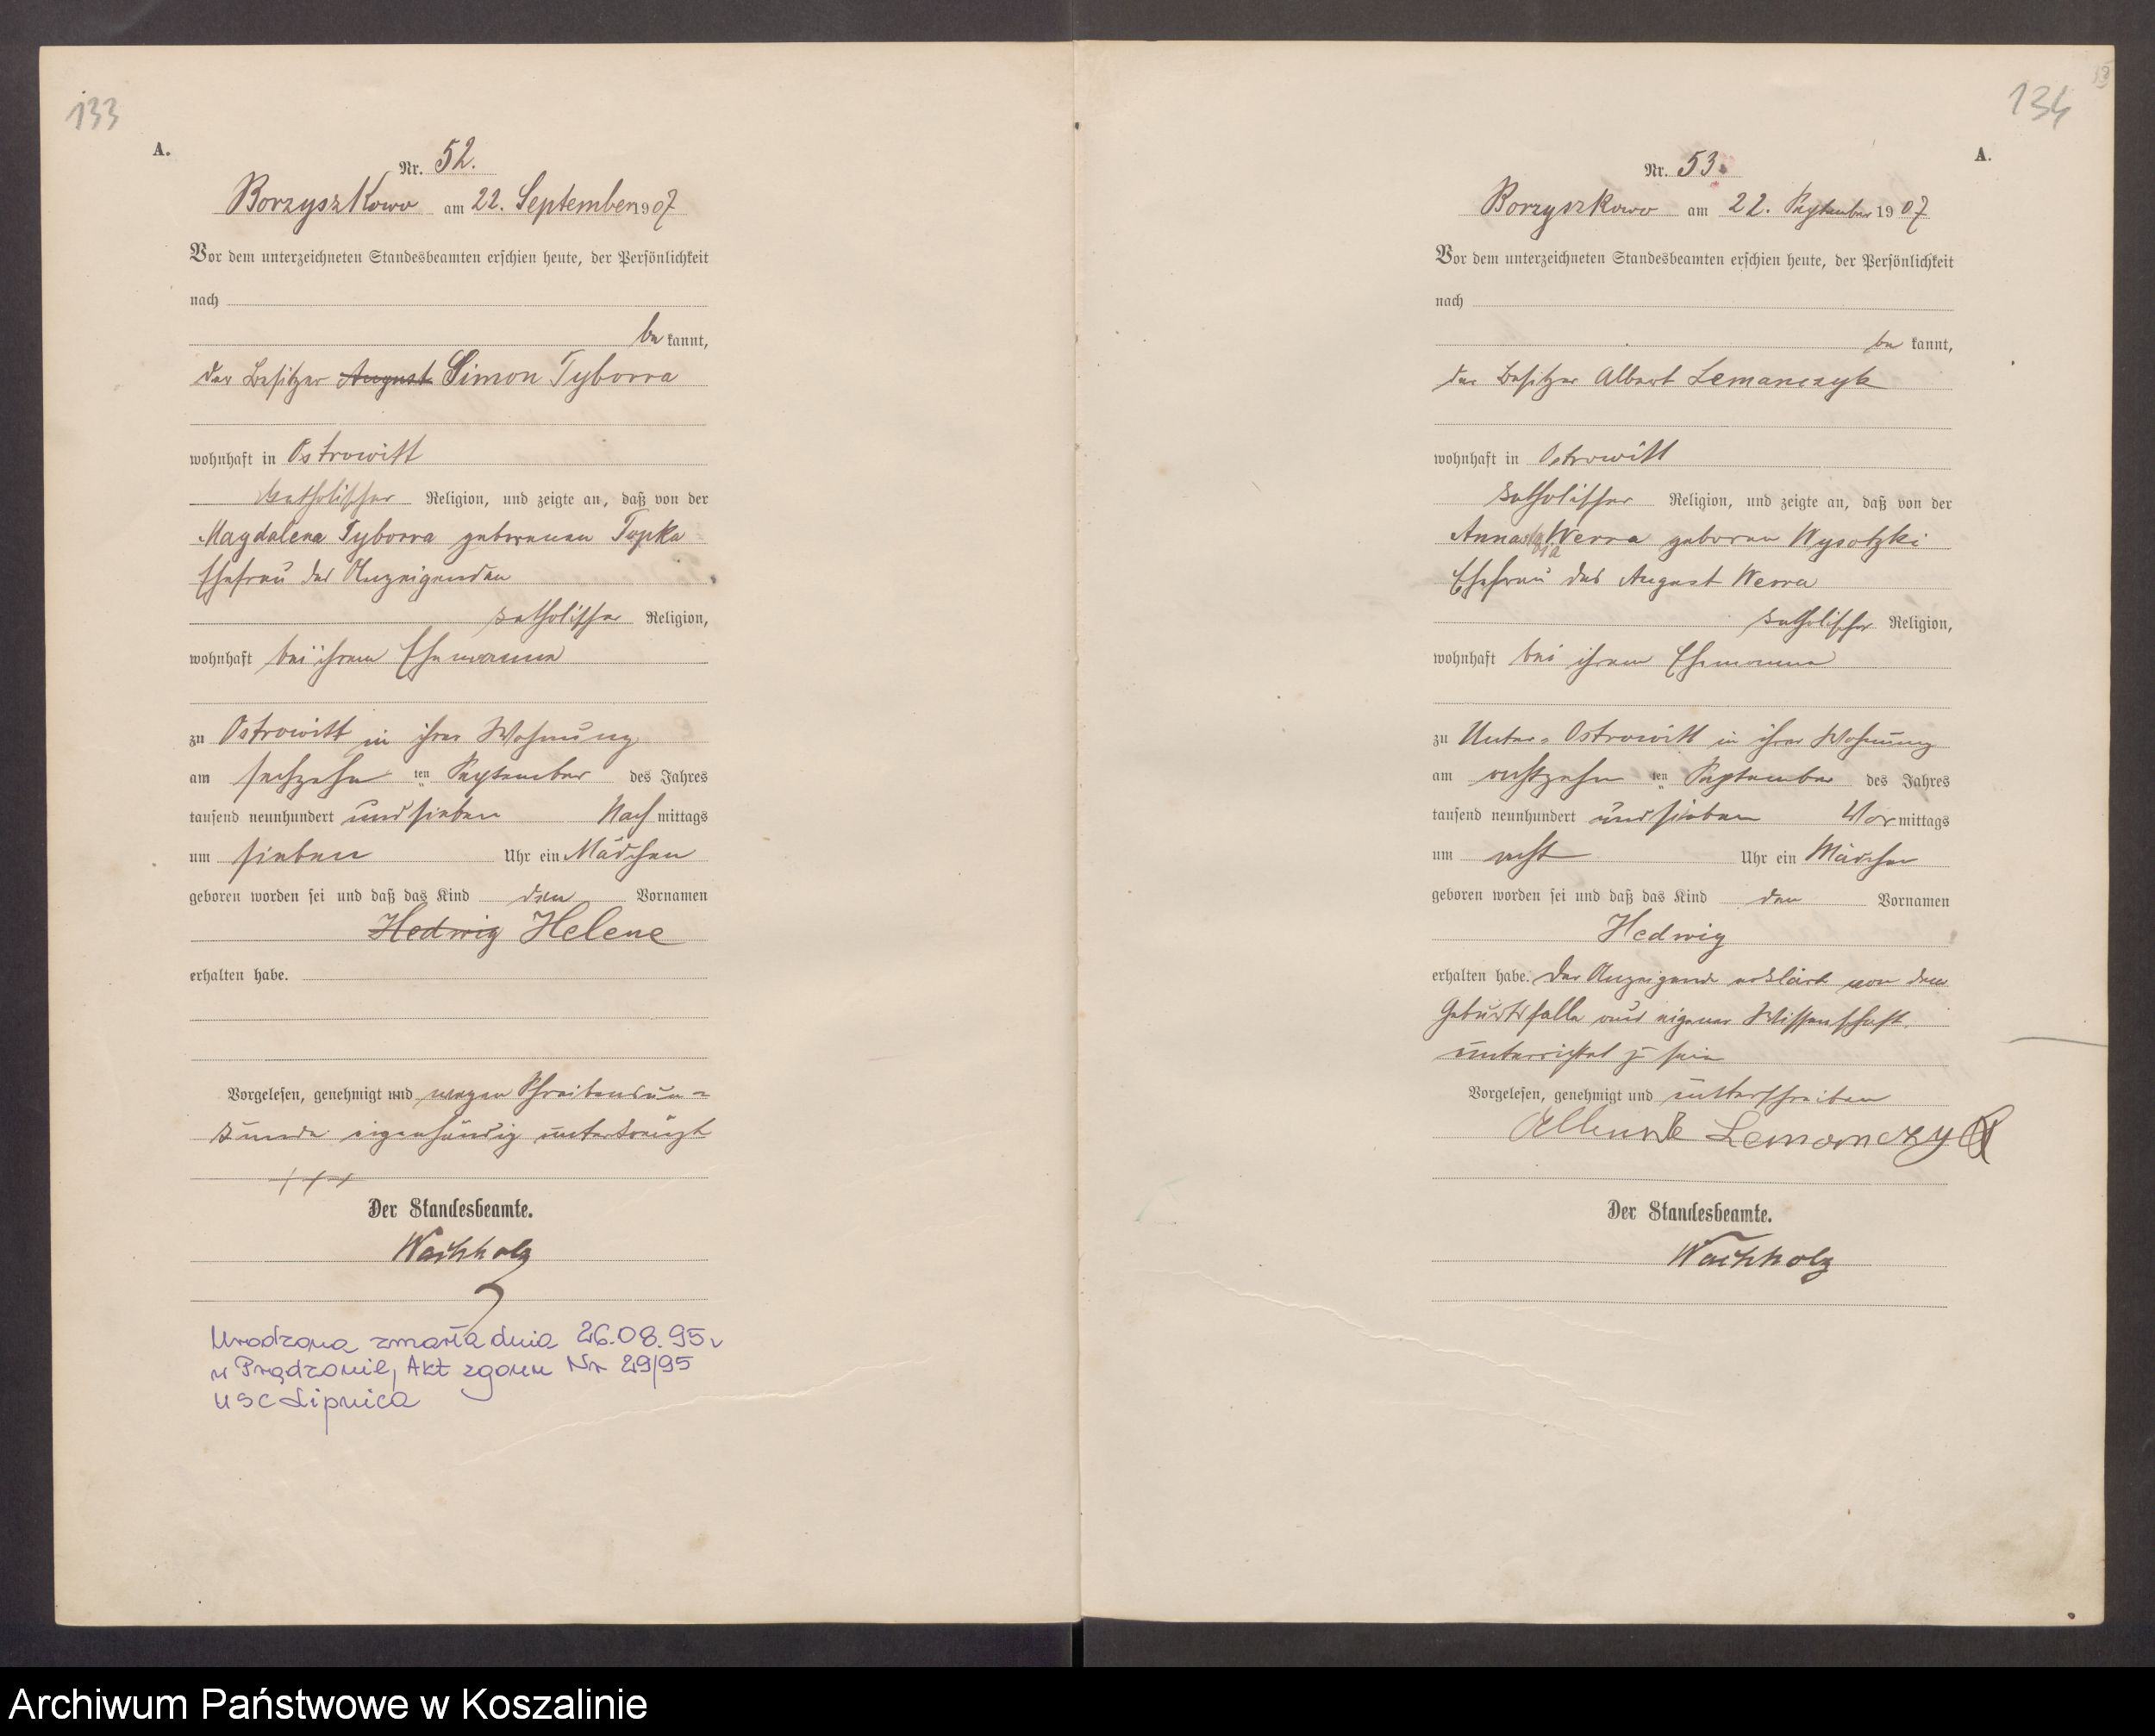 133
A.
Nr. 52.
Borzyszkowo am 22. September 1907
Vor dem unterzeichneten Standesbeamten erschien heute, der Persönlichkeit
nach
be kannt,
der Besitzer August Simon Tyborra
wohnhaft in Ostrowitt
katholischer Religion, und zeigte an, daß von der
Magdalena Tyborra geborenen Topka
Ehefrau des Anzeigenden
katholischer Religion,
wohnhaft bei ihrem Ehemanne
zu Ostrowitt in ihrer Wohnung
am sechzehn ten September des Jahres
tausend neunhundert und sieben Nach mittags
um sieben Uhr ein Mädchen
geboren worden sei und daß das Kind den Vornamen
Hedwig Helene
erhalten habe.
Vorgelesen, genehmigt und wegen Schreibensun=
kunde eigenhändig unterkreuzt
+++
Der Standesbeamte.
Wachholz
Urodzona zmarła dnia 26.08.95r
w Prądzonie, Akt zgonu Nr 29/95
USC Lipnica
134
A.
Nr. 53.
Borzyszkowo am 22. September 1907
Vor dem unterzeichneten Standesbeamten erschien heute, der Persönlichkeit
nach
be kannt,
der Besitzer Albert Lemanczyk
wohnhaft in Ostrowitt
katholischer Religion, und zeigte an, daß von der
Werra geboren Wysotzki
Ehefrau des August Werra
katholischer Religion,
wohnhaft bei ihrem Ehemanne
zu Unter=Ostrowitt in ihrer Wohnung
am achtzehn ten September des Jahres
tausend neunhundert und sieben Vor mittags
um acht Uhr ein Mädchen
geboren worden sei und daß das Kind den Vornamen
Hedwig
erhalten habe. Der Anzeigende erklärt von dem
Geburtsfalle aus eigener Wissenschaft
unterrichtet zu sein
Vorgelesen, genehmigt und unterschrieben
Lemanczyk
Der Standesbeamte.
Wachholz
Archiwum Państwowe w Koszalinie